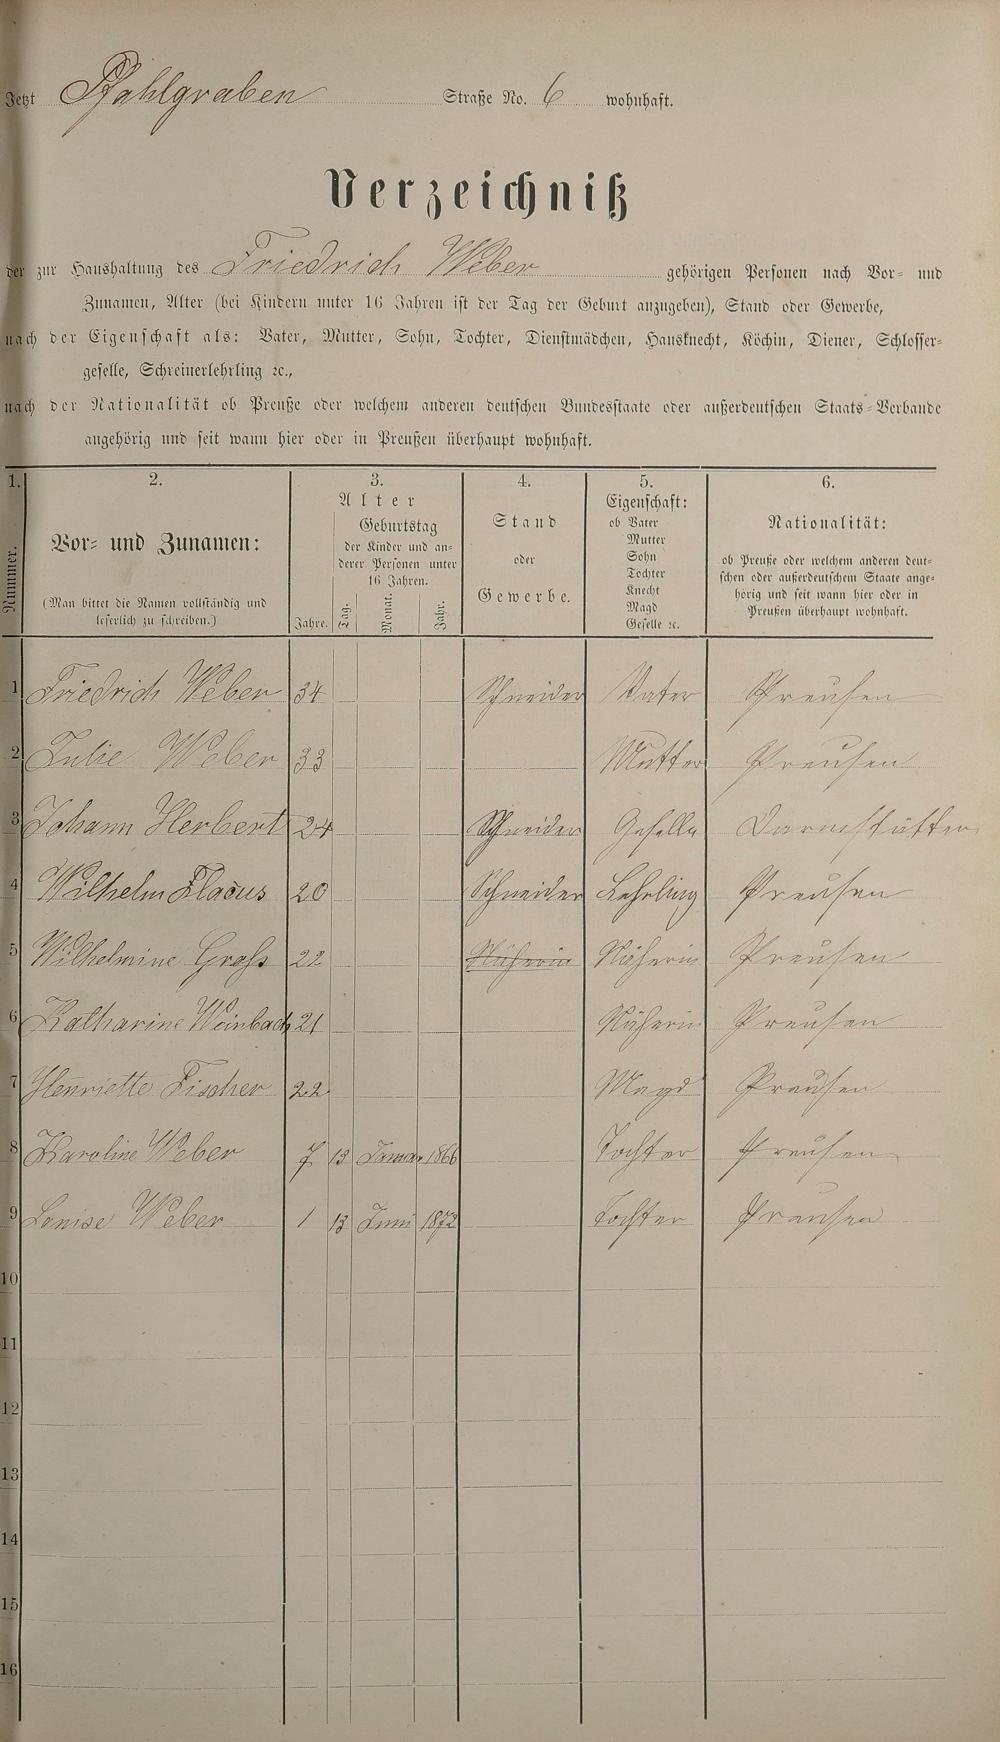 Jetzt Pfahlgraben Straße No. 6 wohnhaft.
Verzeichniß
der zur Haushaltung des Friedrich Weber gehörigen Personen nach Vor- und
Zunamen, Alter (bei Kindern unter 16 Jahren ist der Tag der Geburt anzugeben), Stand oder Gewerbe,
nach der Eigenschaft als: Vater, Mutter, Sohn, Tochter, Dienstmädchen, Hausknecht, Köchin, Diener, Schlosser-
geselle, Schreinerlehrling ꝛc.,
nach der Nationalität ob Preuße oder welchem anderen deutschen Bundesstaate oder außerdeutschen Staats-Verbande
angehörig und seit wann hier oder in Preußen überhaupt wohnhaft.
1. 2. 3. 4. 5. 6.
Nummer.
Vor- und Zunamen:
(Man bittet die Namen vollständig und
leserlich zu schreiben.)
Alter
Jahre.
Geburtstag
der Kinder und an-
derer Personen unter
16 Jahren.
Tag. Monat. Jahr.
Stand
oder
Gewerbe.
Eigenschaft:
ob Vater
Mutter
Sohn
Tochter
Knecht
Magd
Geselle ꝛc.
Nationalität:
ob Preuße oder welchem anderen deut-
schen oder außerdeutschem Staate ange-
hörig und seit wann hier oder in
Preußen überhaupt wohnhaft.
1 Friedrich Weber 34 Schneider Vater Preusen
2 Julie Weber 33 Mutter Preusen
3 Johann Herbert 24 Schneider Geselle Darmstätter
4 Wilhelm Flacus 20 Schneider Lehrling Preusen
5 Wilhelmine Groß 22 Näherin Näherin Preusen
6 Katharine Weinbach 21 Näherin Preusen
7 Henriette Fischer 22 Magd Preusen
8 Karoline Weber 7 13 Januar 1866 Tochter Preusen
9 Louise Weber 1 13 Juni 1872 Tochter Preusen
10
11
12
13
14
15
16